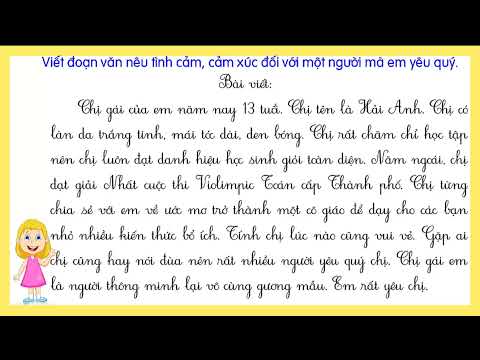 Viết đoạn văn nêu tình cảm, cảm xúc đối với một người mà em yêu quý.
Bài viết:
Chị gái của em năm nay 13 tuổi. Chị tên là Hải Anh. Chị có
làn da trắng tinh, mái tóc dài, đen bóng. Chị rất chăm chỉ học tập
nên chị luôn đạt danh hiệu học sinh giỏi toàn diện. Năm ngoái, chị
đạt giải Nhất cuộc thi Violimpic Toán cấp Thành phố. Chị từng
chia sẻ với em về ước mơ trở thành một cô giáo để dạy cho các bạn
nhỏ nhiều kiến thức bổ ích. Tính chị lúc nào cũng vui vẻ. Gặp ai
chị cũng hay nói đùa nên rất nhiều người yêu quý chị. Chị gái em
là người thông minh lại vô cùng gương mẫu. Em rất yêu chị.